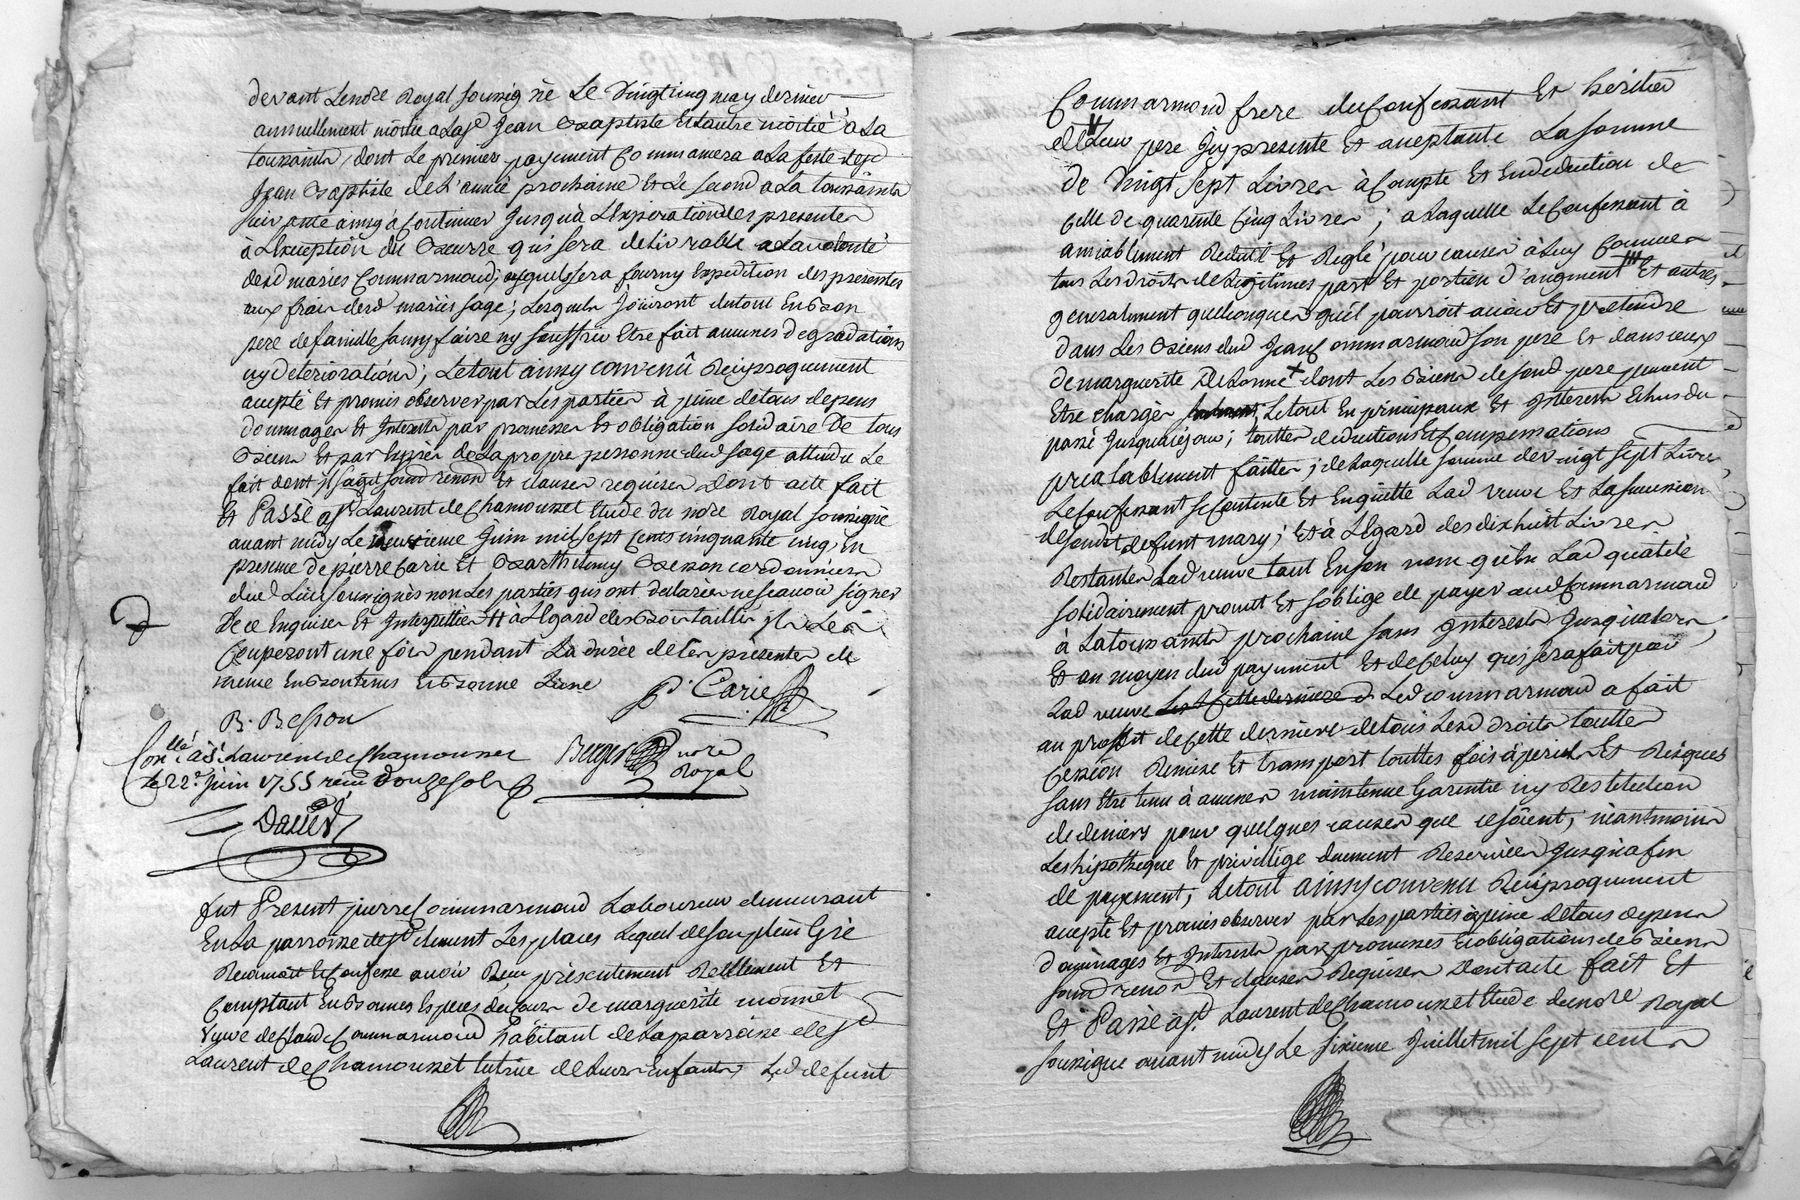 devant Lenore Royal soussigné Le vingtcinq may dernier
annuellement moitié a La st Jean Baptiste Et Lautre moitié a La
toussaints, dont Le premier payement Commancera a La feste de st
Jean Baptiste de L'année prochaine Et Le second a La toussaints
suivante ainsy a Continuer Jusqu'à L'Expiration des presentes
à L'Exception du Beurre qui sera delivrable a La volonté
desd mariés Commarmond; auxquels sera fourny Expedition des presentes
aux frais desd mariés sage; Lesquels Jouiront dutout En Bon
pere defamille sans y faire ny souffrir Etre fait aucunes degradations
ny déteriorations; Letout ainsy convenû Reciproquement
accepté Et promis observer par Les parties à peine detous depens
dommages Et Interests par promesses Et obligation solidaire De tous
Biens Et par Exprès de La propre personne dud sage attendu Le
fait dont il s'agit soumd renond Et clauses requises Dont acte fait
Et Passé a st Laurent de Chamousset Etude du nore Royal soussigné
avant midy Le deuxieme Juin mil sept Cents cinquante cinq, En
presence de pierre Carie Et Barthelemy Besson cordonniers
dud Lieu soussignés non Les parties qui ont déclaré ne scavoir signer
De ce Enquises Et Interpellées # à L'Egard des Bois taillis ils Les
Couperont une fois pendant La durée de Ces presentes de
meme En Bon tems En Bonne Lune P. Carie
B. Besson
Conllé a St Laurent de Chamousset Berger nore
le 22e Juin 1755 reçu douze sols Royal
David
fut Present pierre Commarmond Laboureur demeurant
En La parroisse de st clement Les places Lequel de son plein Gré
Reconnoit Et Confesse avoir Reçu presentement Réellement Et
Comptant En Bonnes Especes du Cours De marguerite monnet
veuve de Claude Commarmond habitant de La parroisse de st
Laurent de Chamousset tutrice de Leurs Enfants, Led defunt
Commarmond frere du Confessant Et heritier
de Leur pere Icy presente Et acceptante La somme
De vingt sept Livres à Compte Et En deduction de
Celle de quarente Cinq Livres; a Laquelle Le Confessant à
amiablement Reduit Et Reglé pour causer à Luy Connues
tous Les droits de Legitimes part Et portion d'augment Et autres
generalement quelconques qu'il pourroit avoir Et pretendre
dans Les Biens dud Jean Commarmond son pere Et dans ceux
de marguerite + dont Les Biens desond pere peuvent
Etre chargés Letout En principaux Et Interests Echus du
passé Jusqu'a ce jour; toutes deductions Et Compensations
prealablement faittes; de Laquelle somme de vingt sept Livres
Le Confessant se Contente Et En quitte Lad veuve Et La succession
desondt defunt mary; Et à L'Egard des dixhuit Livres
Restantes Lad veuve tant En son nom qu'En Lad qualité
solidairement promet Et s'oblige de payer aud Commarmond
à La toussaints prochaine sans Interests Jusqu'alors;
Et au moyen dud payement Et de Celuy qui sera fait par
Lad veuve Led Commarmond a fait
au proffit de Cette derniere de tous Lesd droits toutte
Cession Remise Et transport touttes fois à perils Et Risques
sans Etre tenu à aucunes maintenue Garentie ny Restitution
de deniers pour quelques causes que ce soient, néantmoins
Les hipotheque Et privillege demeurent Reservées Jusqu'a fin
de payement, Letout ainsy convenu Reciproquement
accepté Et promis observer par Les parties à peine De tous depens
dommages Et Interests par promesses Et obligations de Biens
soumd renond Et clauses Requises Dont acte fait Et
Et Passé à st Laurent de Chamousset Etude du nore Royal
soussigné avant midy Le sixieme Juillet mil sept cents